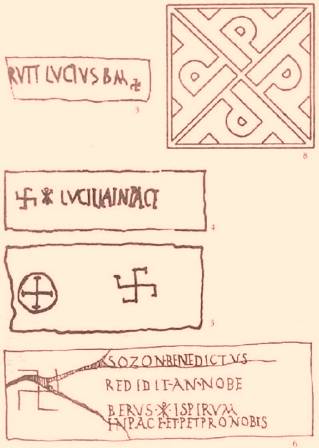 RUTI LUCIUS B M
3
8
☧ LUCILIA IN PACE
4
5
SOZON·BENEDICTVS
REDIDIT·AN·NOBE
BERVS·☧·ISPIRVM
INPACE·ETPETPRONOBIS
6